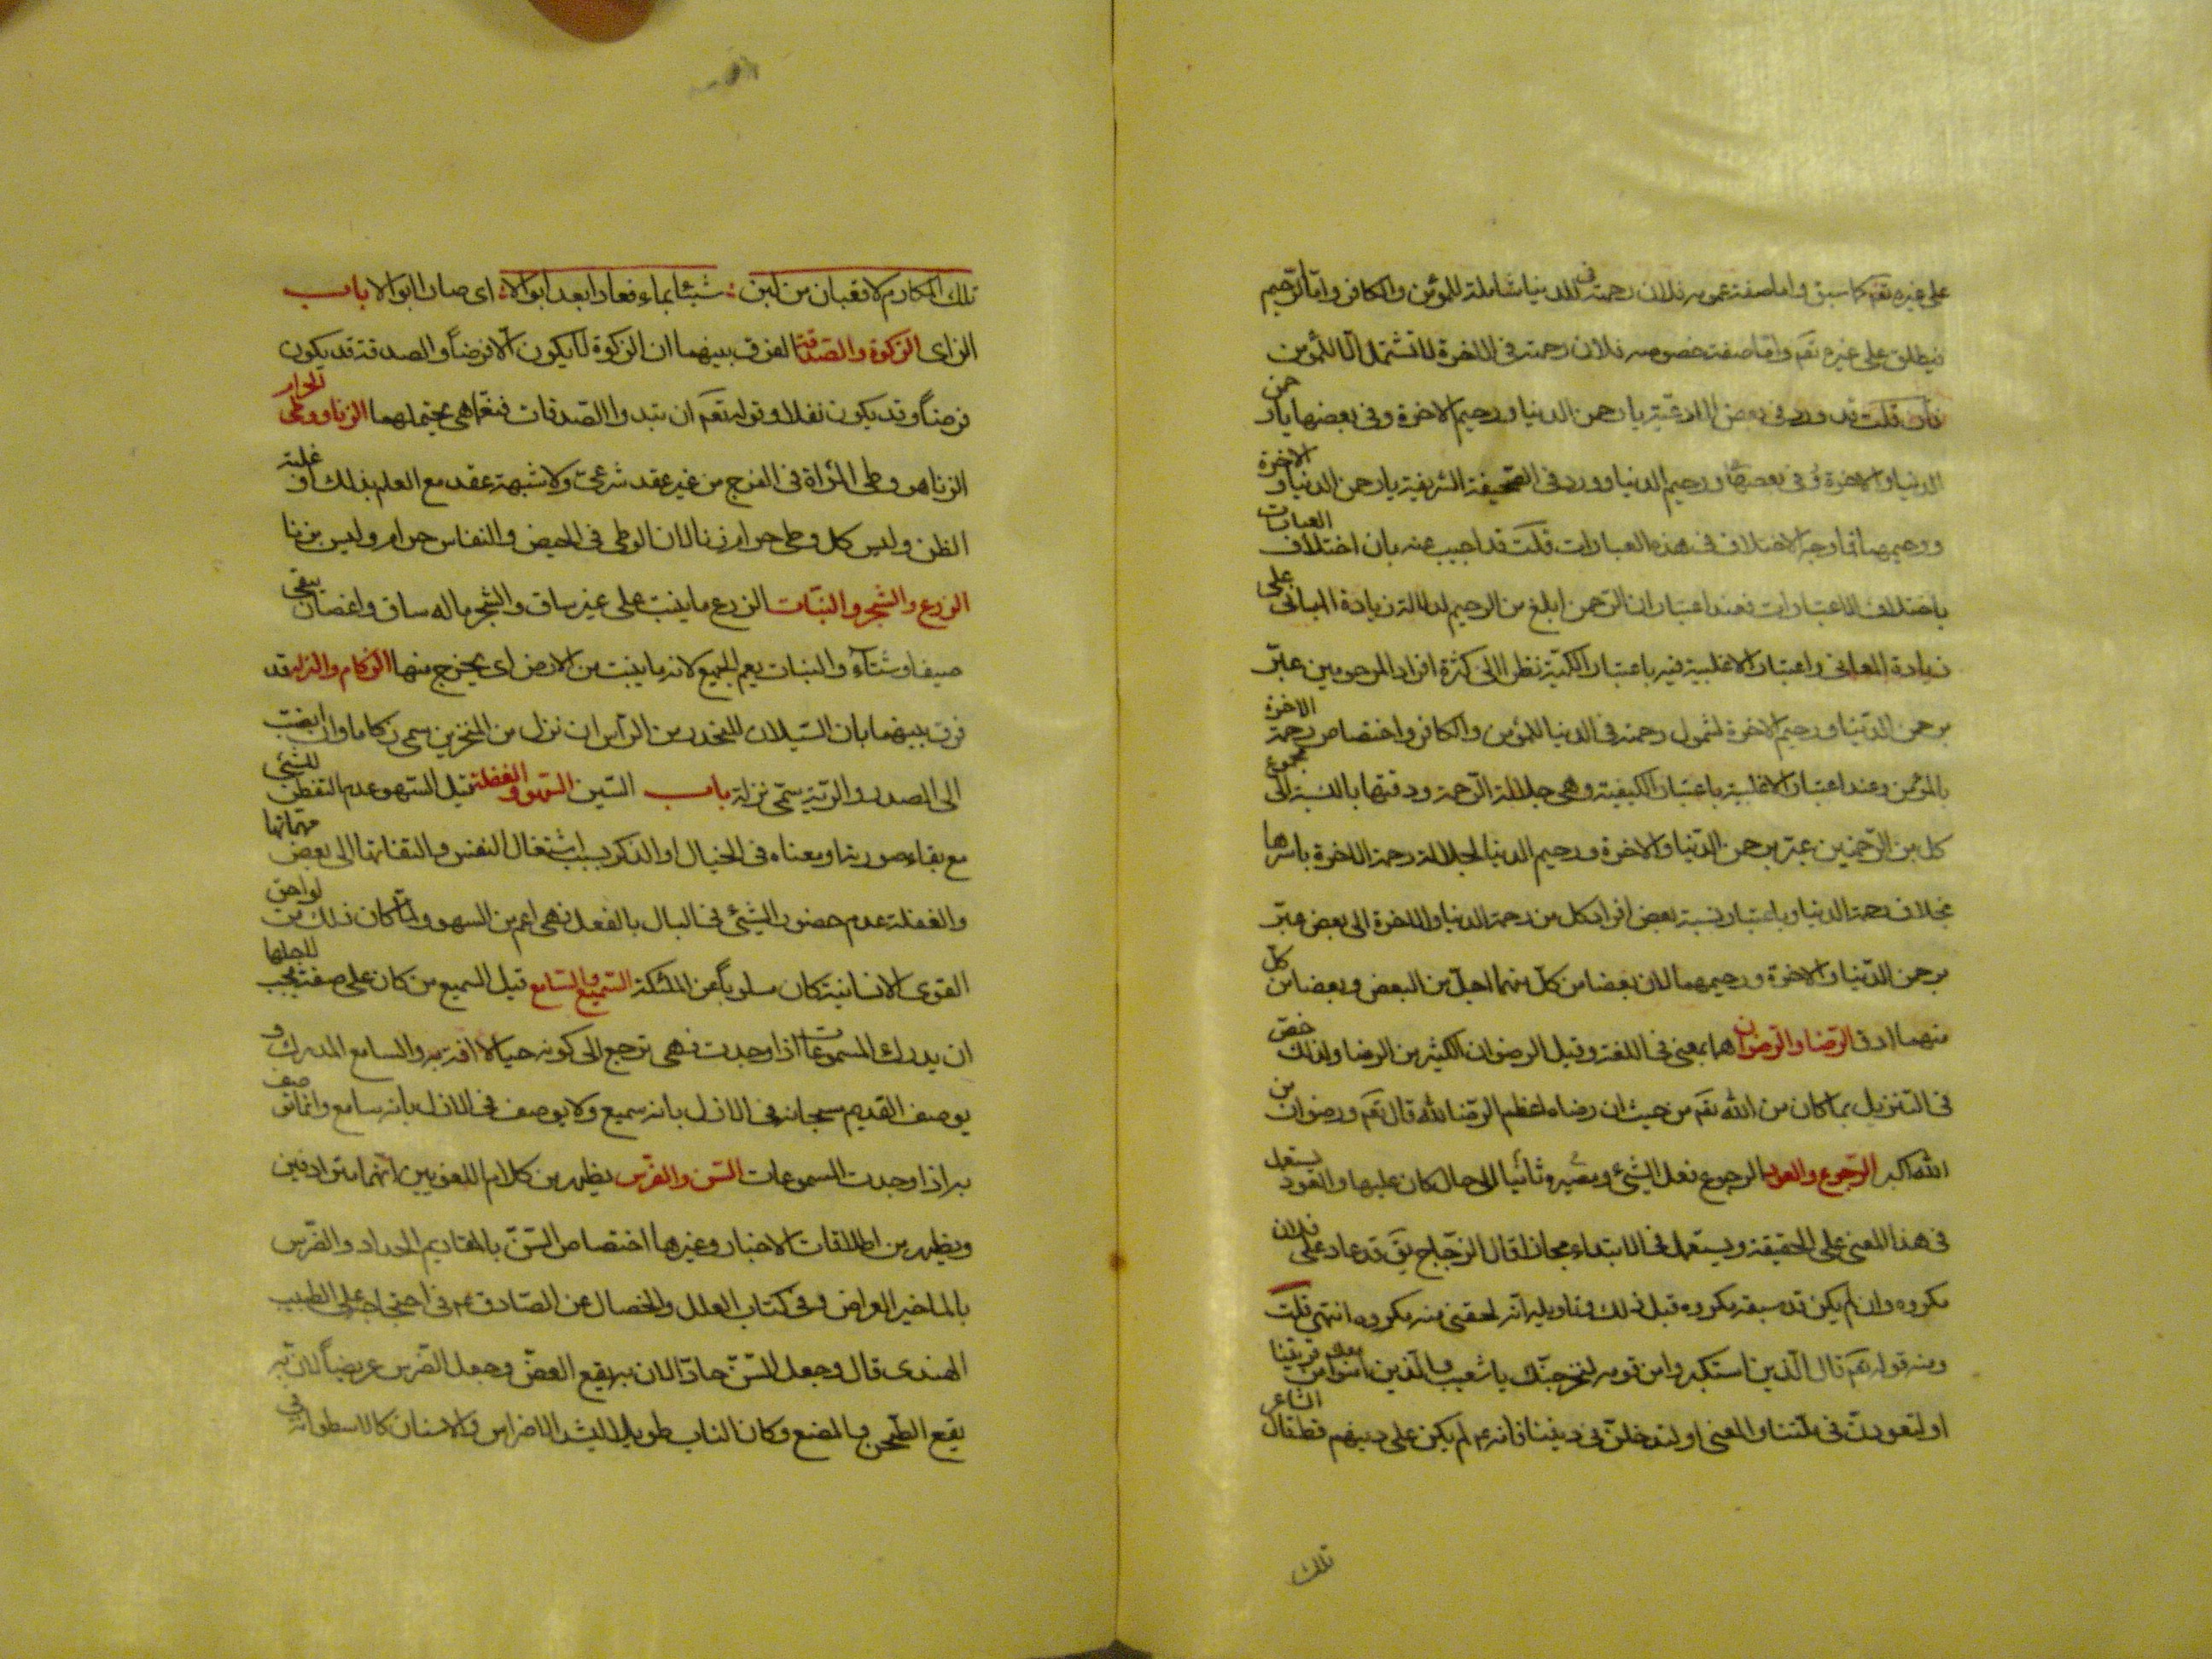 على غيره تقم كما سبق واما صفة عمومه فلان رحمته فى الدنيا شاملة للمؤمن والكافر واما الرّحيم
فيطلق على غيره تقم واما صفة خصوصه فلان رحمته فى الاخرة لا تشتمل الّا المؤمن
فان قلت قد ورد فى بعض الادعية يا رحمن الدنيا ورحيم الاخرة وفى بعضها يا رحمن
الدنيا والاخرة وفى بعضها ورحيم الدنيا وورد فى الصّحيفة الشريفة يا رحمن الدنيا والاخرة
ورحيمهما فما وجه الاختلاف فى هذه العبارات قلت قد اجيب عنه بان اختلاف العبارات
باختلاف الاعتبارات فعند اعتبار ان الرّحمن ابلغ من الرحيم لدلالة زيادة المبانى على
زيادة المعانى واعتبار الاغلبية فيه باعتبار الكميّة نظرا الى كثرة افراد المرحومين عبّر
برحمن الدّنيا ورحيم الاخرة لشمول رحمته فى الدنيا للمؤمن والكافر واختصاص رحمة الاخرة
بالمؤمن وعند اعتبار الاغلبية باعتبار الكيفية وهى جلالة الرّحمة ودقتها بالنسبة الى مجموع
كل من الرّحمتين عبّر برحمن الدّنيا والاخرة ورحيم الدنيا لجلالة رحمة الاخرة باسرها
بخلاف رحمة الدنيا وباعتبار نسبة بعض افراد كل من رحمة الدنيا والاخرة الى بعض عبّر
برحمن الدّنيا والاخرة ورحيمهما لان بعضا من كلّ منهما اجلّ من البعض وبعضا من كلّ
منهما ادقّ الرّضا والرّضوان هما بمعنى فى اللغة وقيل الرضوان الكثير من الرضا ولذلك خصّ
فى التنزيل بما كان من الله تقم من حيث ان رضاه اعظم الرّضا لله قال تقم ورضوان من
الله اكبر الرّجوع والعود الرجوع فعل الشيئ ومصيره ثانيا الى حال كان عليها والعود يستعمل
فى هذا المعنى على الحقيقة ويستعمل فى الابتداء مجازا قال الزّجاج يق قد عاد علىّ فلان
مكروه وان لم يكن قد سبقه مكروه قبل ذلك وتاويله انّه لحقنى منه مكروه انتهى قلت
ومنه قوله تقم قال الّذين استكبروا من قومه لنخرجنّك يا شعيب والّذين امنوا معك من قريتنا
او لتعودنّ فى ملّتنا والمعنى او لتدخلنّ فى ديننا فانه ع لم يكن على دينهم قط قال الشاعر
تلك
تلك المكارم لا قعبان من لبن شيبا بماء فعادا بعد ابوالا اى صارا ابوالا باب
الزاى الزكوة والصّدقة الفرق بينهما ان الزكوة لا يكون الّا فرضاً والصدقة قد يكون
فرضاً وقد يكون نفلا وقوله تقم ان تبدوا الصّدقات فنعمّا هى يحتملهما الزنا ووطى الحرام
الزنا هو وطى المراة فى الفرج من غير عقد شرعىّ ولا شبهة عقد مع العلم بذلك او غلبة
الظن وليس كل وطى حرام زنا لان الوطى فى الحيض والنفاس حرام وليس بزنا
الزرع والشجر والنبّات الزرع ما ينبت على غير ساق والشجر ما له ساق واغصان يبقى
صيفا وشتاءً والنبات يعم الجميع لانه ما ينبت من الارض اى يخرج منها الزكام والنزلة قد
فرق بينهما بان السّيلان المنحدر من الرّاس ان نزل من المنخرين سمى زكاما وان انصبّ
الى الصدر والريّة يسمّى نزلة باب السّين السّهو والغفلة قيل السّهو عدم التفطن للشئ
مع بقاء صورته او معناه فى الخيال او الذكر بسبب اشتغال النفس والتفاتها الى بعض مهمّاتها
والغفلة عدم حضور الشيئ فى البال بالفعل فهى اعم من السهو ولمّا كان ذلك من لواحق
القوى الانسانية كان مسلوباً عن الملئكة السّميع والسّامع قيل السميع من كان على صفة يجب لاجلها
ان يدرك المسموعات اذا وجدت فهى ترجع الى كونه حيا لا افة به والسامع المدرك و
يوصف القديم سبحانه فى الازل بانه سميع ولا يوصف فى الازل بانه سامع وانما يوصف
به اذا وجدت المسموعات السّن والضّرس يظهر من كلام اللغويين انّهما مترادفين
ويظهر من اطلاقات الاخبار وغيرها اختصاص السّنّ بالمقاديم الحداد والضّرس
بالماخير العراض وفى كتاب العلل والخصال عن الصّادق ع فى احتجاجه على الطبيب
الهندى قال وجعل السّنّ حادّا لان به يقع العضّ وجعل الضّرس عريضاً لانّ به
يقع الطّحن والمضغ وكان الناب طويلا ليشد الاضراس والاسنان كالاسطوانة فى